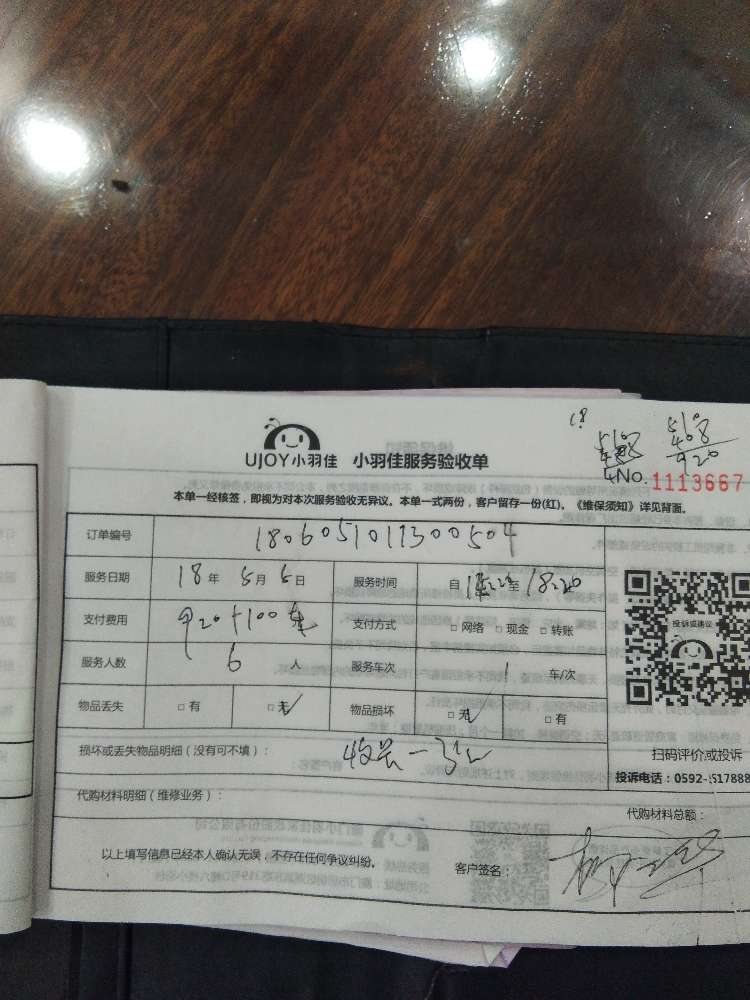 UJOY小羽佳 小羽佳服务验收单
510
408
920
No. 1113667
本单一经核签，即视为对本次服务验收无异议。本单一式两份，客户留存一份(红)。《维保须知》详见背面。
订单编号 1806051011300504
服务日期 18年 5月 6日 服务时间 自 至 18:20
支付费用 920+100车 支付方式 □网络 □现金 □转账
服务人数 6 人 服务车次 1 车/次
物品丢失 □有 □无 物品损坏 □无 □有
投诉或建议
损坏或丢失物品明细（没有可不填）：
扫码评价或投诉
投诉电话：0592-517888
代购材料明细（维修业务）：
代购材料总额：
以上填写信息已经本人确认无误，不存在任何争议纠纷。 客户签名：